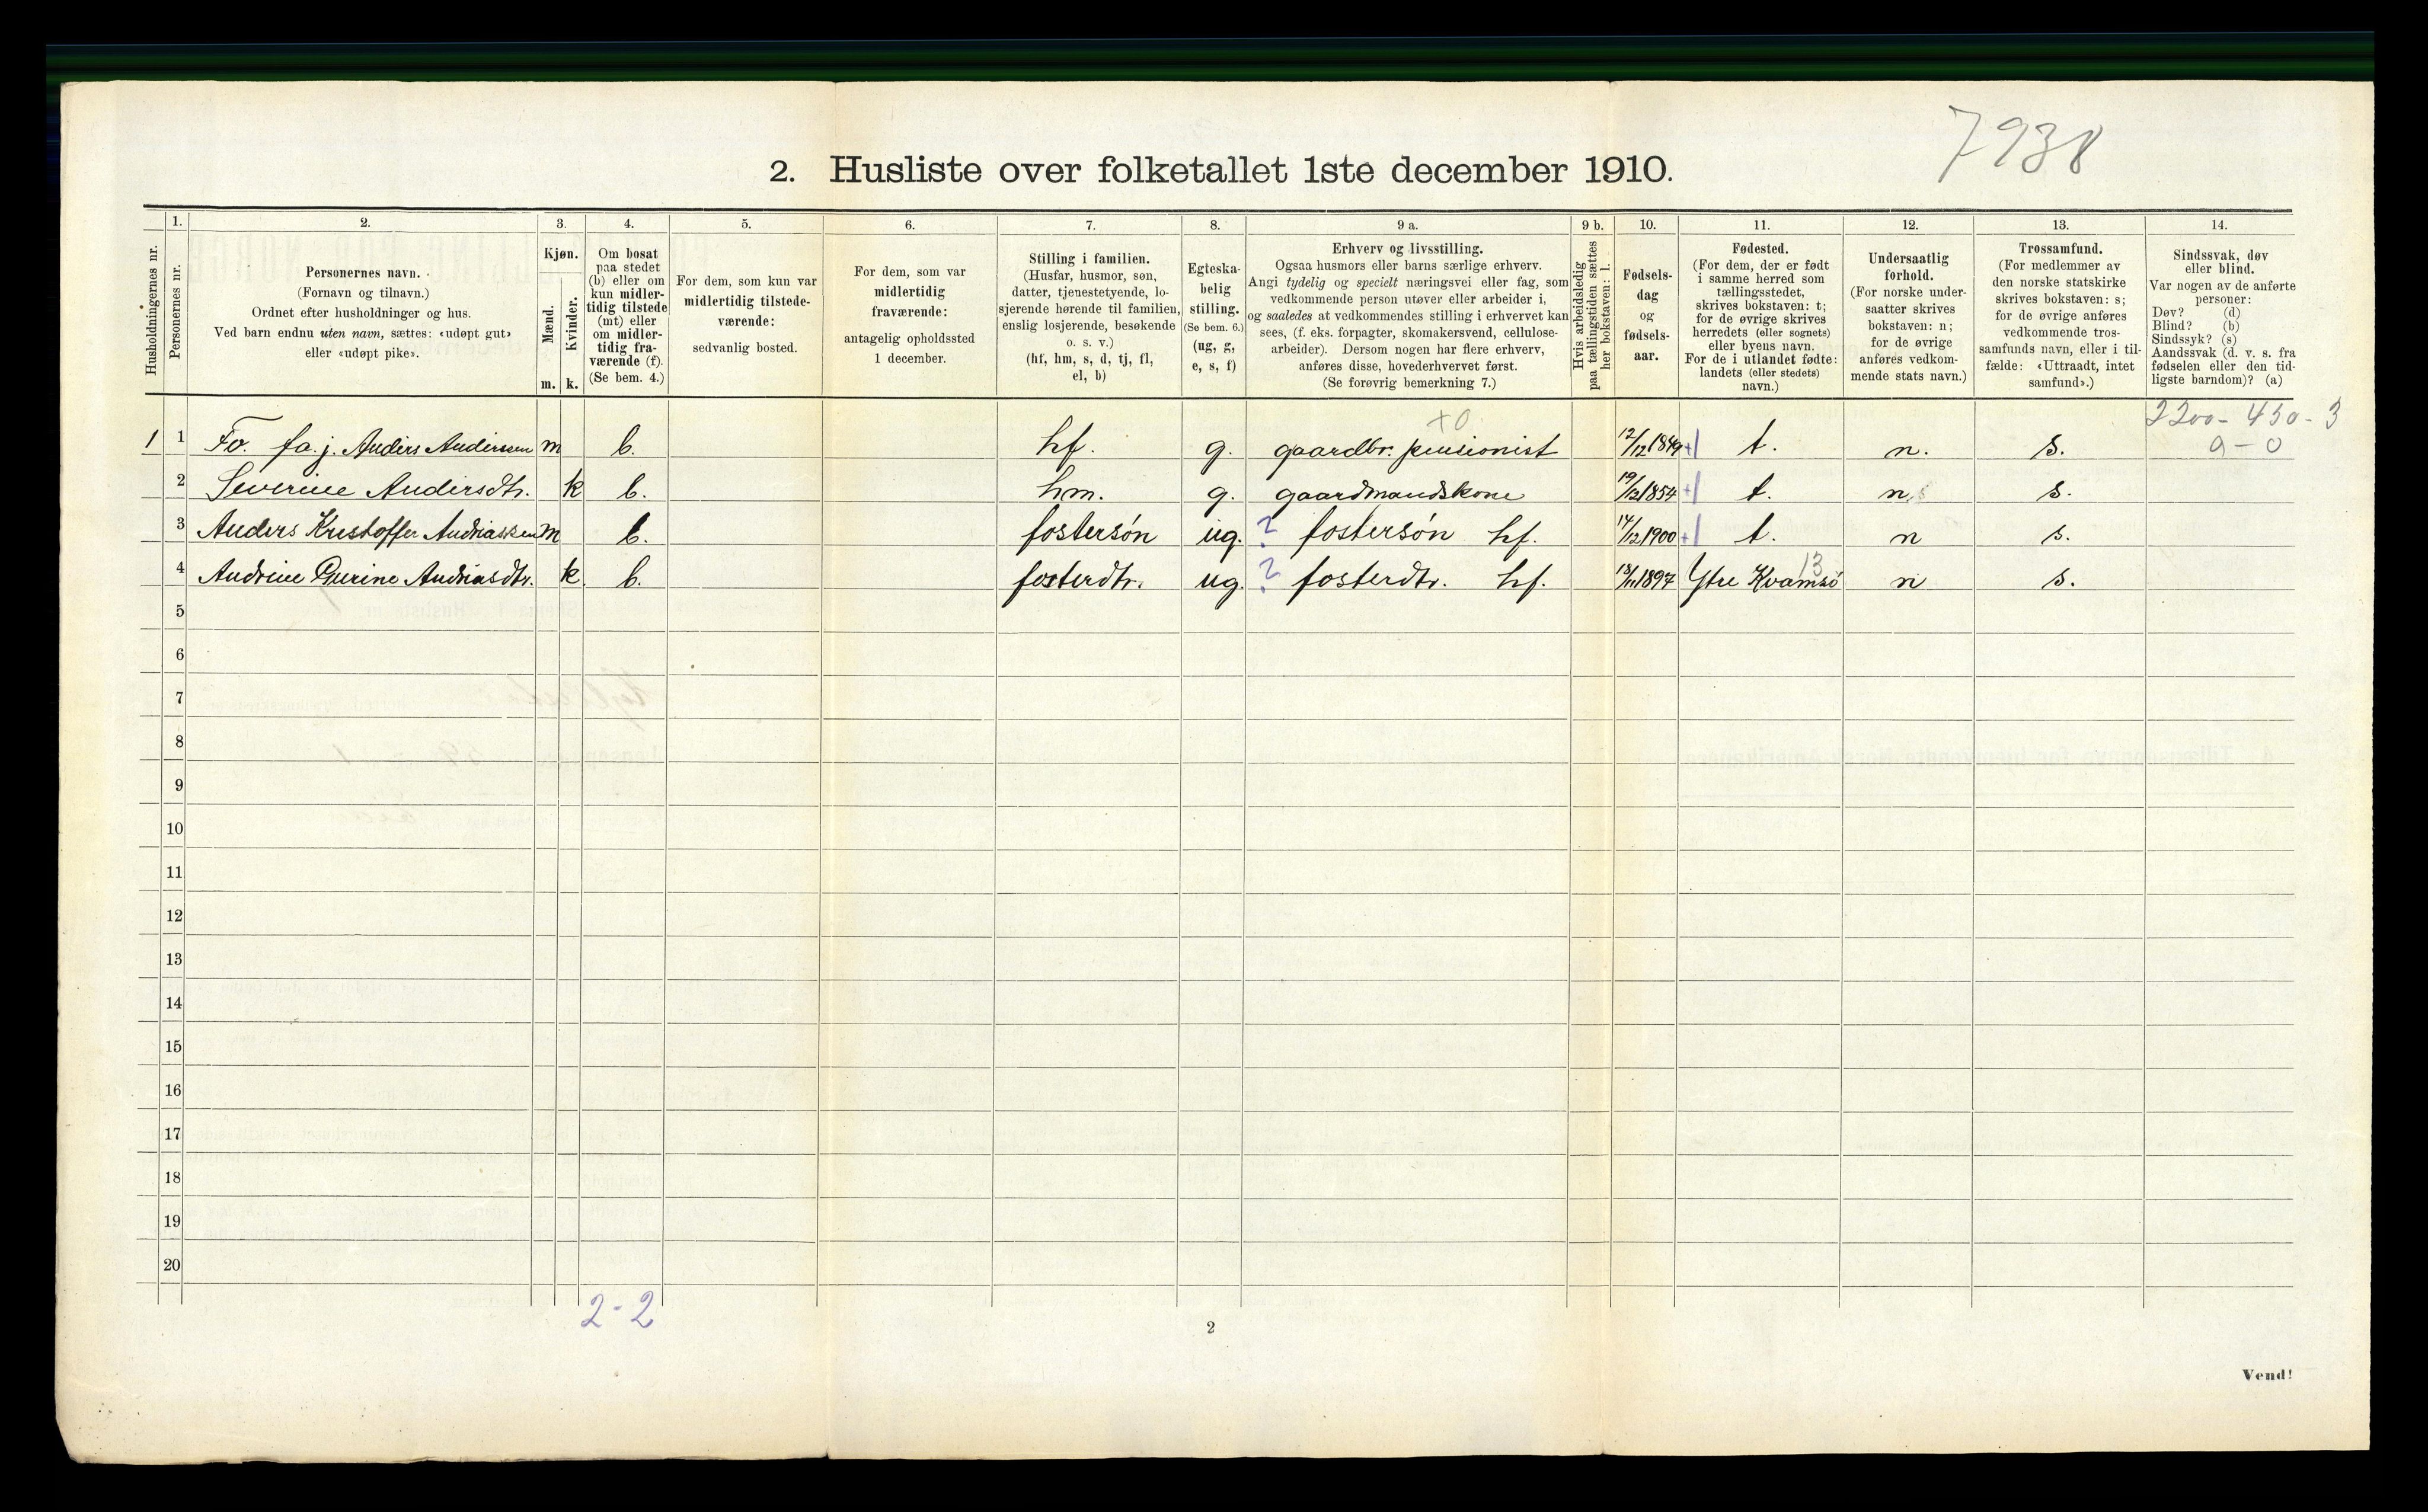 7938
2. Husliste over folketallet 1ste december 1910.
Husholdningernes nr.
1.
Personernes nr.
2.
Personernes navn.
(Fornavn og tilnavn.)
Ordnet efter husholdninger og hus.
Ved barn endnu uten navn, sættes: «udøpt gut»
eller «udøpt pike».
3.
Kjøn.
Mænd.
Kvinder.
m. k.
4.
Om bosat
paa stedet
(b) eller om
kun midler-
tidig tilstede
(mt) eller
om midler-
tidig fra-
værende (f).
(Se bem. 4.)
5.
For dem, som kun var
midlertidig tilstede-
værende:
sedvanlig bosted.
6.
For dem, som var
midlertidig
fraværende:
antagelig opholdssted
1 december.
7.
Stilling i familien.
(Husfar, husmor, søn,
datter, tjenestetyende, lo-
sjerende hørende til familien,
enslig losjerende, besøkende
o. s. v.)
(hf, hm, s, d, tj, fl,
el, b)
8.
Egteska-
belig
stilling.
(Se bem. 6.)
(ug, g,
e, s, f)
9 a.
Erhverv og livsstilling.
Ogsaa husmors eller barns særlige erhverv.
Angi tydelig og specielt næringsvei eller fag, som
vedkommende person utøver eller arbeider i,
og saaledes at vedkommendes stilling i erhvervet kan
sees, (f. eks. forpagter, skomakersvend, cellulose-
arbeider). Dersom nogen har flere erhverv,
anføres disse, hovederhvervet først.
(Se forøvrig bemerkning 7.)
9 b.
Hvis arbeidsledig
paa tællingstiden sættes
her bokstaven: l.
10.
Fødsels-
dag
og
fødsels-
aar.
11.
Fødested.
(For dem, der er født
i samme herred som
tællingsstedet,
skrives bokstaven: t;
for de øvrige skrives
herredets (eller sognets)
eller byens navn.
For de i utlandet fødte:
landets (eller stedets)
navn.)
12.
Undersaatlig
forhold.
(For norske under-
saatter skrives
bokstaven: n;
for de øvrige
anføres vedkom-
mende stats navn.)
13.
Trossamfund.
(For medlemmer av
den norske statskirke
skrives bokstaven: s;
for de øvrige anføres
vedkommende tros-
samfunds navn, eller i til-
fælde: «Uttraadt, intet
samfund».)
14.
Sindssvak, døv
eller blind.
Var nogen av de anførte
personer:
Døv? (d)
Blind? (b)
Sindssyk? (s)
Aandssvak (d. v. s. fra
fødselen eller den tid-
ligste barndom)? (a)
2200 - 450 - 3
+0
1 1 Fo. fa. j. Anders Anderssen m b. hf. g. gaardbr. pensionist 12/12 1849 +1 t. n. s. a - 0
2 Severine Andersdtr. k b. hm. g. gaardmandskone 19/12 1854 +1 t. n. s.
3 Anders Kristoffer Andreassen m b. fostersøn ug. ? fostersøn hf. 14/12 1900 +1 t. n s.
13
4 Andrine Gurine Andreasdtr. k. b. fosterdtr. ug. ? fosterdtr. hf. 1897 Ytre Kvamsø n s.
5
6
7
8
9
10
11
12
13
14
15
16
17
18
19
20
2-2
2
Vend!